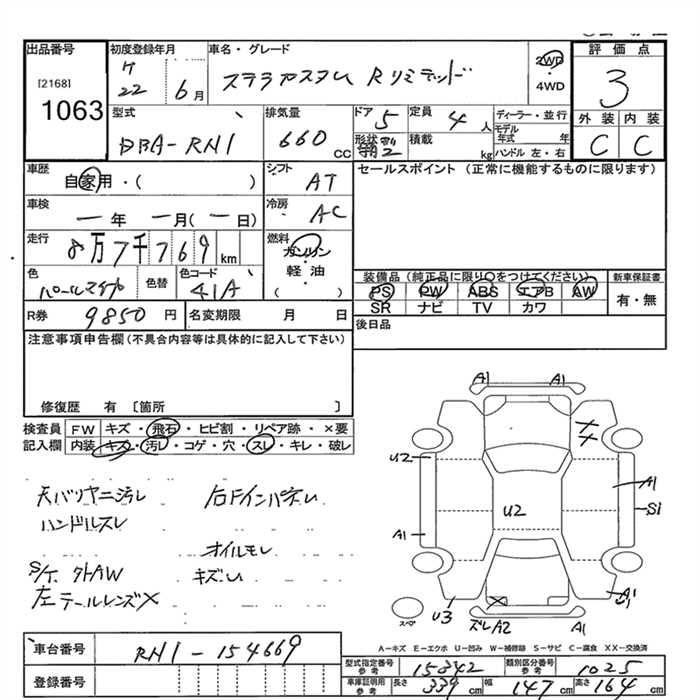 出品番号 初度登録年月 車名・グレード 評価点
[2168] 22 6月 ステラカスタム Rリミテッド 2WD・4WD 3
1063
型式 排気量 ドア 5 定員 4人 ディーラー・並行 外装 内装
DBA-RN1 660cc 形状 積載 kg モデル年式 年 C C
ハンドル 左・右
車歴 自家用・( ) シフト AT セールスポイント (正常に機能するものに限ります)
車検 一年 一月(一日) 冷房 AC
走行 8万7千769km 燃料 ガソリン
軽油
( )
色 色替 色コード 41A 装備品(純正品に限り○をつけてください) 新車保証書
PS PW ABS エアB AW 有・無
SR ナビ TV カワ
R券 9850円 名変期限 月 日 後日品
注意事項申告欄(不具合内容等は具体的に記入して下さい)
修復歴 有 〔箇所 〕
検査員 FW キズ・飛石・ヒビ割・リペア跡・×要
記入欄 内装 キズ・汚レ・コゲ・穴・スレ・キレ・破レ
天バリヤニ汚レ
ハンドルスレ
オイルモレ
S/T. 外AW
左テールレンズX
A1 A1
U2
A1
U2
A1
S1
U3
ズレA2
A1
スペア
A-キズ E-エクボ U-凹み W-補修跡 S-サビ C-腐食 XX-交換済
車台番号 RN1-154669
登録番号
型式指定番号 参考 15842 類別区分番号 参考 1025
車庫証明用 参考 長さ 339cm 幅 147cm 高さ 164cm